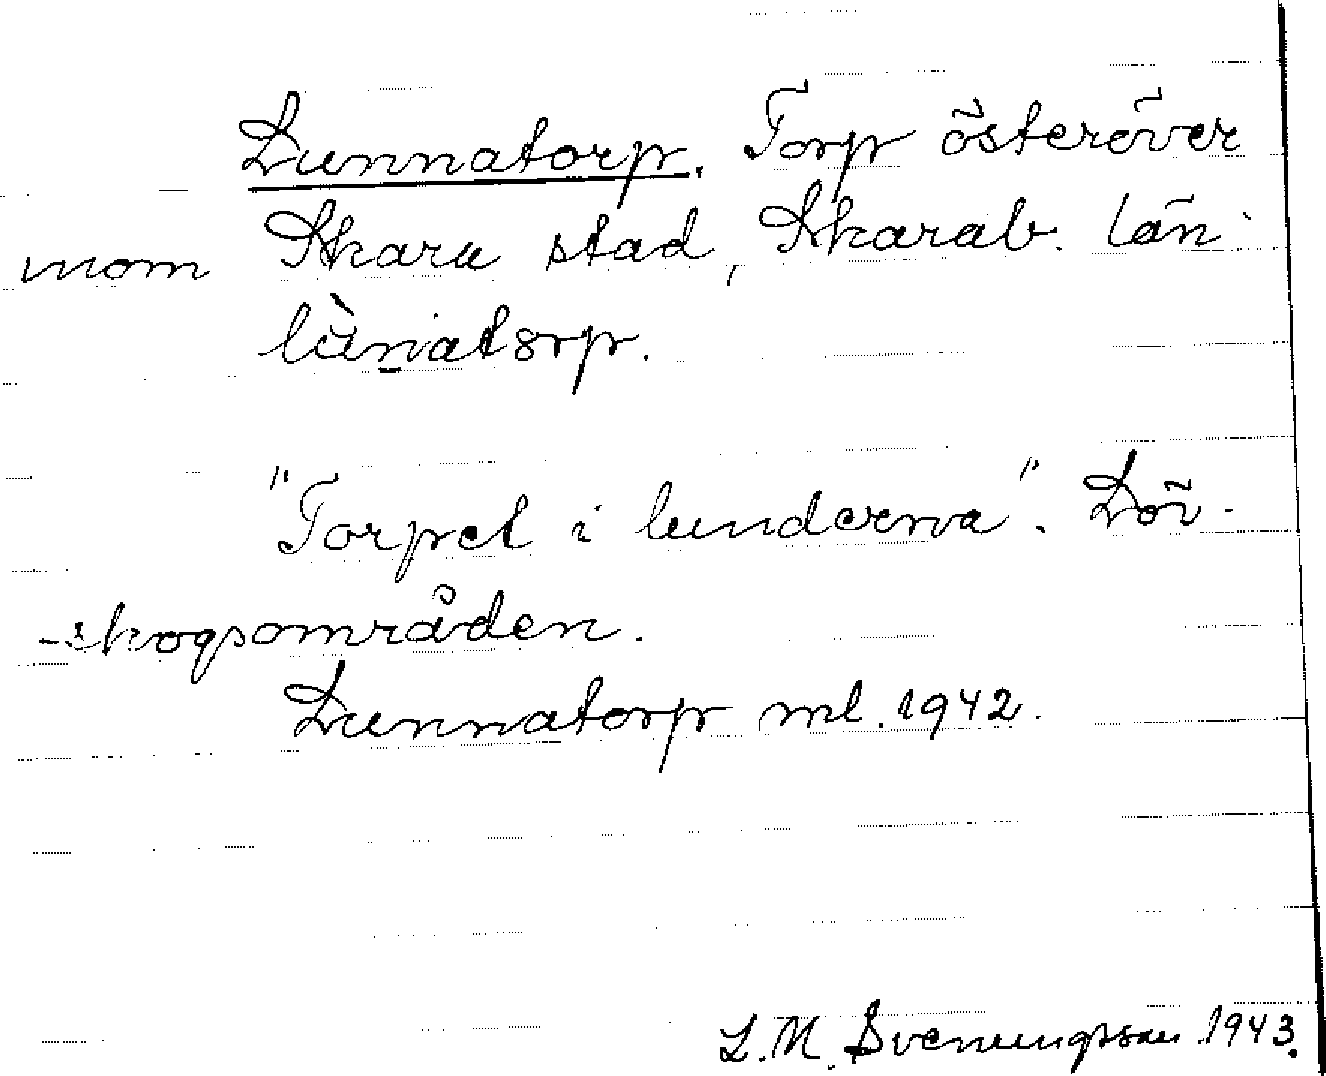 Lunnatorp. Torp österöver
inom Skara stad, Skarab. län
lùnatorp.
"Torpet i lunderna". Löv-
-skogsområden.
Lunnatorp ml. 1942.
S. M. Svenungsson 1943.